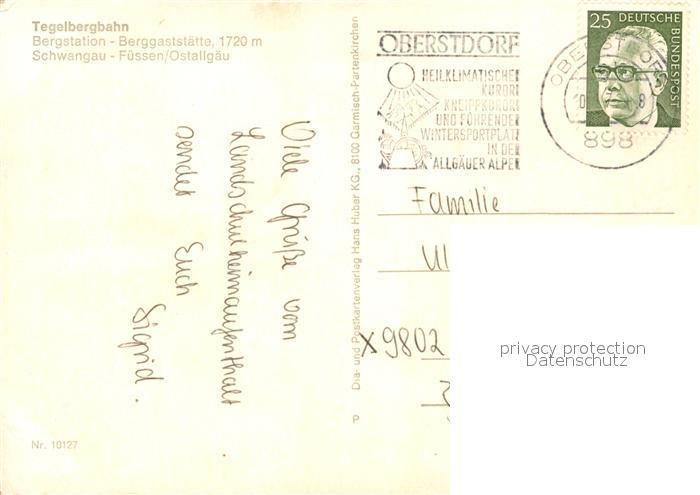 Tegelbergbahn
Bergstation - Berggaststätte, 1720 m
Schwangau - Füssen/Ostallgäu
Viele Grüße vom
Landschulheimaufenthalt
sendet Euch
Sigrid.
Nr. 10127
Dia- und Postkartenverlag Hans Huber KG., 8100 Garmisch-Partenkirchen
P
OBERSTDORF
HEILKLIMATISCHER
KURORT
KNEIPPKURORT
UND FÜHRENDER
WINTERSPORTPLATZ
IN DEN
ALLGÄUER ALPEN
OBERSTDORF
898
25 DEUTSCHE
BUNDESPOST
Familie
Ul
x9802
privacy protection
Datenschutz